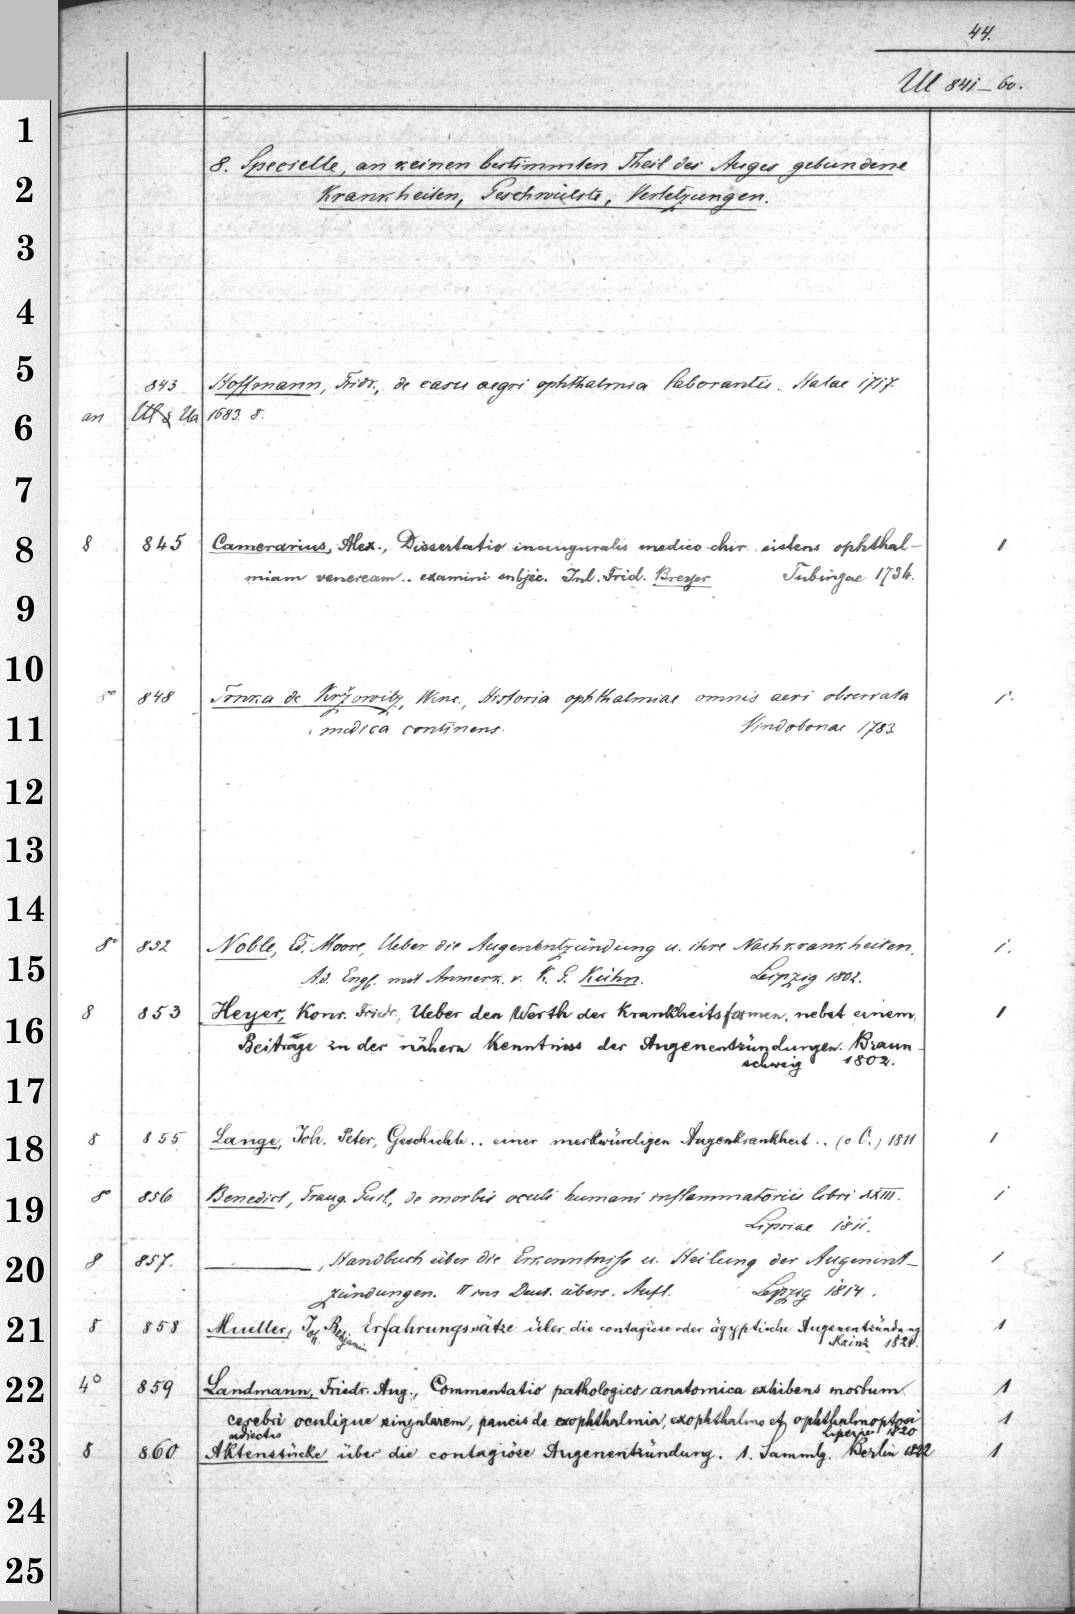 44.
Ul 841–60.
8. Specielle, an keinen bestimmten Theil des Auges gebundene
Krankheiten, Geschwülste, Verletzungen.
843 Hoffmann, Fridr., de casu aegri ophthalmia laborantis. Halae 1717.
an Ul 8 Ua 1683. 8.
8 845 Camerarius, Alex., Dissertatio inauguralis medico-chir. sistens ophthal- 1
miam veneream.. examini subjic. Jul. Frid. Breyer Tubingae 1734.
8° 848 Trnka de Kržowitz, Wenc., Historia ophthalmiae omnis aevi observata 1.
medica continens. Vindobonae 1783
8° 852 Noble, Ed. Moore, Ueber die Augenentzündung u. ihre Nachkrankheiten. 1.
A.d. Engl. mit Anmerk. v. K. G. Kühn. Leipzig 1802.
8 853 Heyer, Konr. Friedr., Ueber den Werth der Krankheitsformen, nebst einem 1
Beitrage zu der nähern Kenntniss der Augenentzündungen. Braun-
schweig 1802.
8 855 Lange, Joh. Peter, Geschichte.. einer merkwürdigen Augenkrankheit.. (o. O.) 1811 1
8° 856 Benedict, Traug. Guil., de morbis oculi humani inflammatoriis libri XXIII. 1
Lipsiae 1811.
8 857. ———, Handbuch über die Erkenntniss u. Heilung der Augenent- 1
zündungen. II ins Deut. übers. Aufl. Leipzig 1814.
8 858 Mueller, Joh. Benjamin Erfahrungssätze über die contagiöse oder ägyptische Augenentzündung 1
Mainz 1821.
4° 859 Landmann, Friedr. Aug., Commentatio pathologico anatomica exhibens morbum 1
cerebri oculique singularem, paucis de exophthalmia, exophthalmo et ophthalmoptosi 1
adjectis Lipsiae 1820
8 860 Aktenstücke über die contagiöse Augenentzündung. 1. Sammlg. Berlin 1822 1
1
2
3
4
5
6
7
8
9
10
11
12
13
14
15
16
17
18
19
20
21
22
23
24
25